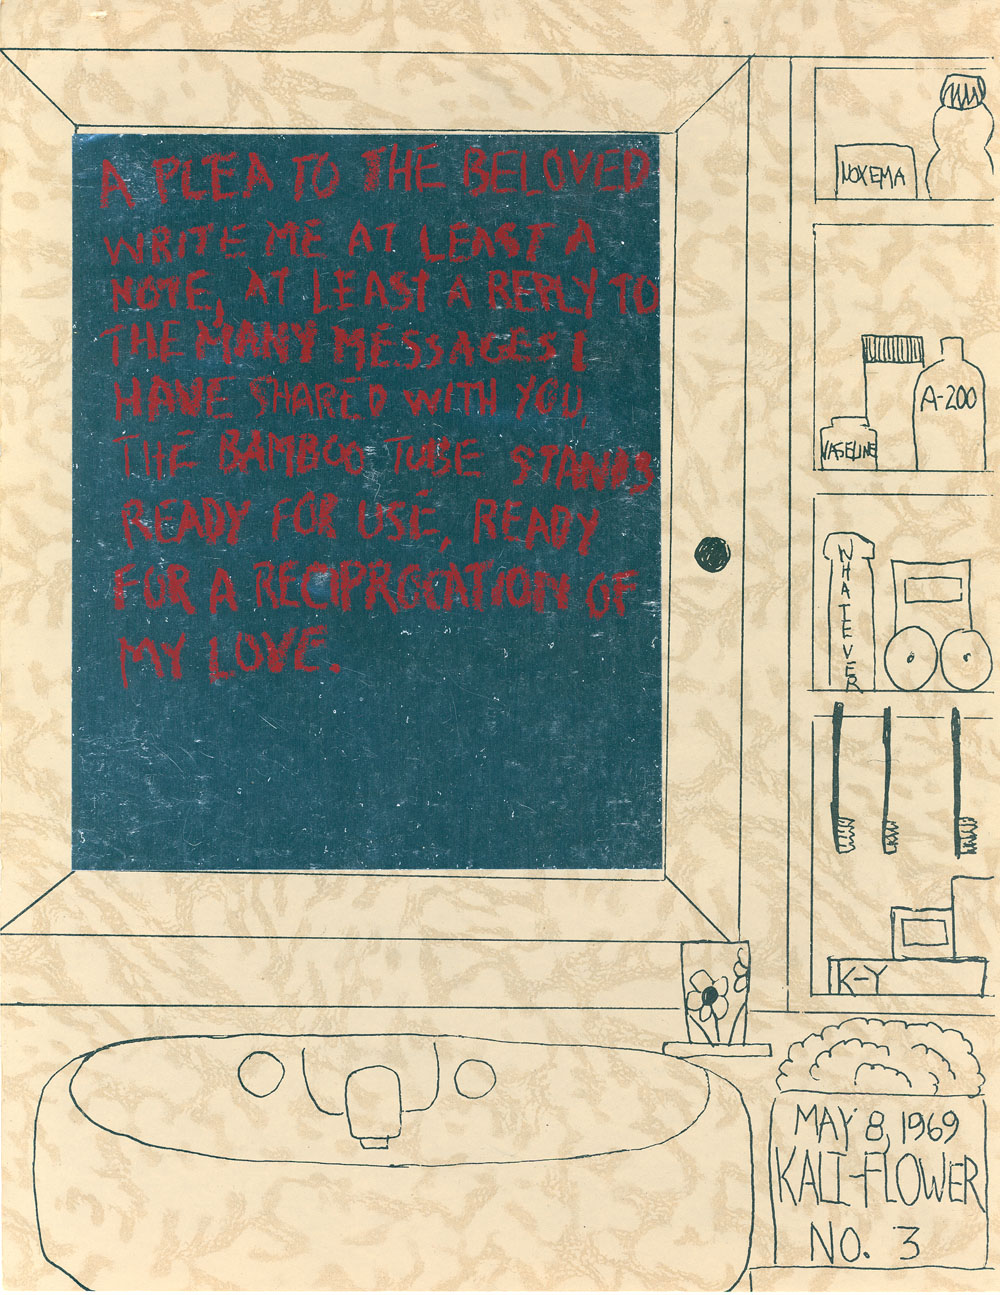 A PLEA TO THE BELOVED
WRITE ME AT LEAST A
NOTE, AT LEAST A REPLY TO
THE MANY MESSAGES I
HAVE SHARED WITH YOU,
THE BAMBOO TUBE STANDS
READY FOR USE, READY
FOR A RECIPROCATION OF
MY LOVE.
NOXEMA
A-200
VASELINE
WHATEEVER
K-Y
MAY 8, 1969
KALI-FLOWER
NO. 3